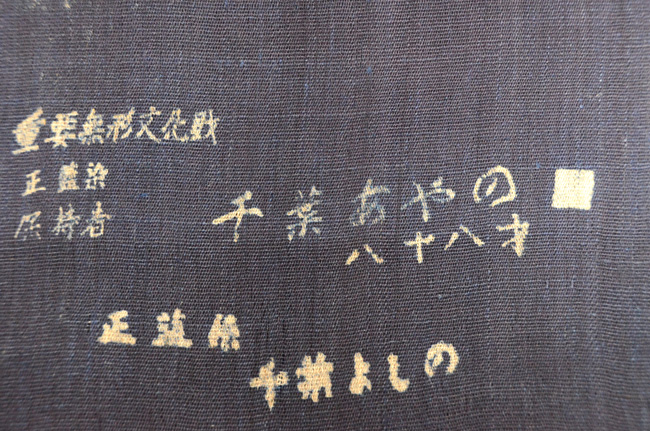 重要無形文化財
正藍染
保持者
千葉あやの
八十八才
正藍染
千葉よしの